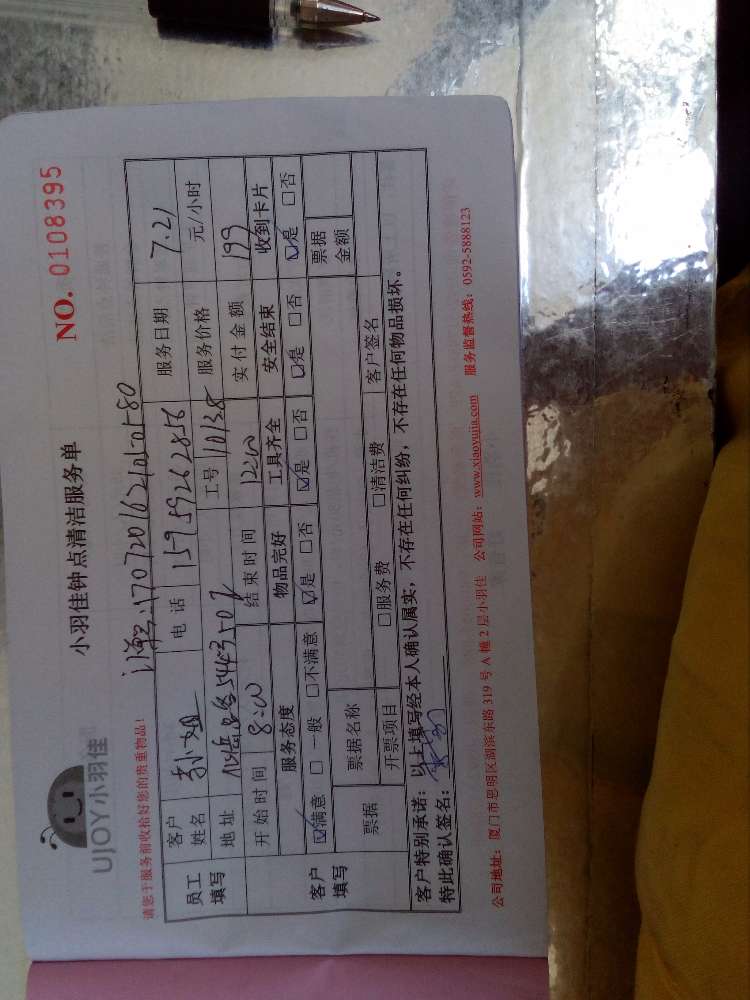 UJOY小羽佳
小羽佳钟点清洁服务单
NO. 0108395
请您于服务前收拾好您的贵重物品!
订单号:170720162105-0580
员工填写
客户姓名 孙姐 电话 15959262856 服务日期 7.21
地址 54-3-07 工号 10138 服务价格 元/小时
开始时间 8:00 结束时间 12:00 实付金额 199
客户填写
服务态度 物品完好 工具齐全 安全结束 收到卡片
☑满意 □一般 □不满意 ☑是 □否 ☑是 □否 ☑是 □否 ☑是 □否
票据 票据名称 票据金额
开票项目 □服务费 □清洁费 客户签名
客户特别承诺:以上填写经本人确认属实,不存在任何纠纷,不存在任何物品损坏。
特此确认签名:
公司地址:厦门市思明区湖滨东路 319 号 A 幢 2 层小羽佳 公司网站:www.xiaoyujia.com 服务监督热线:0592-5888123